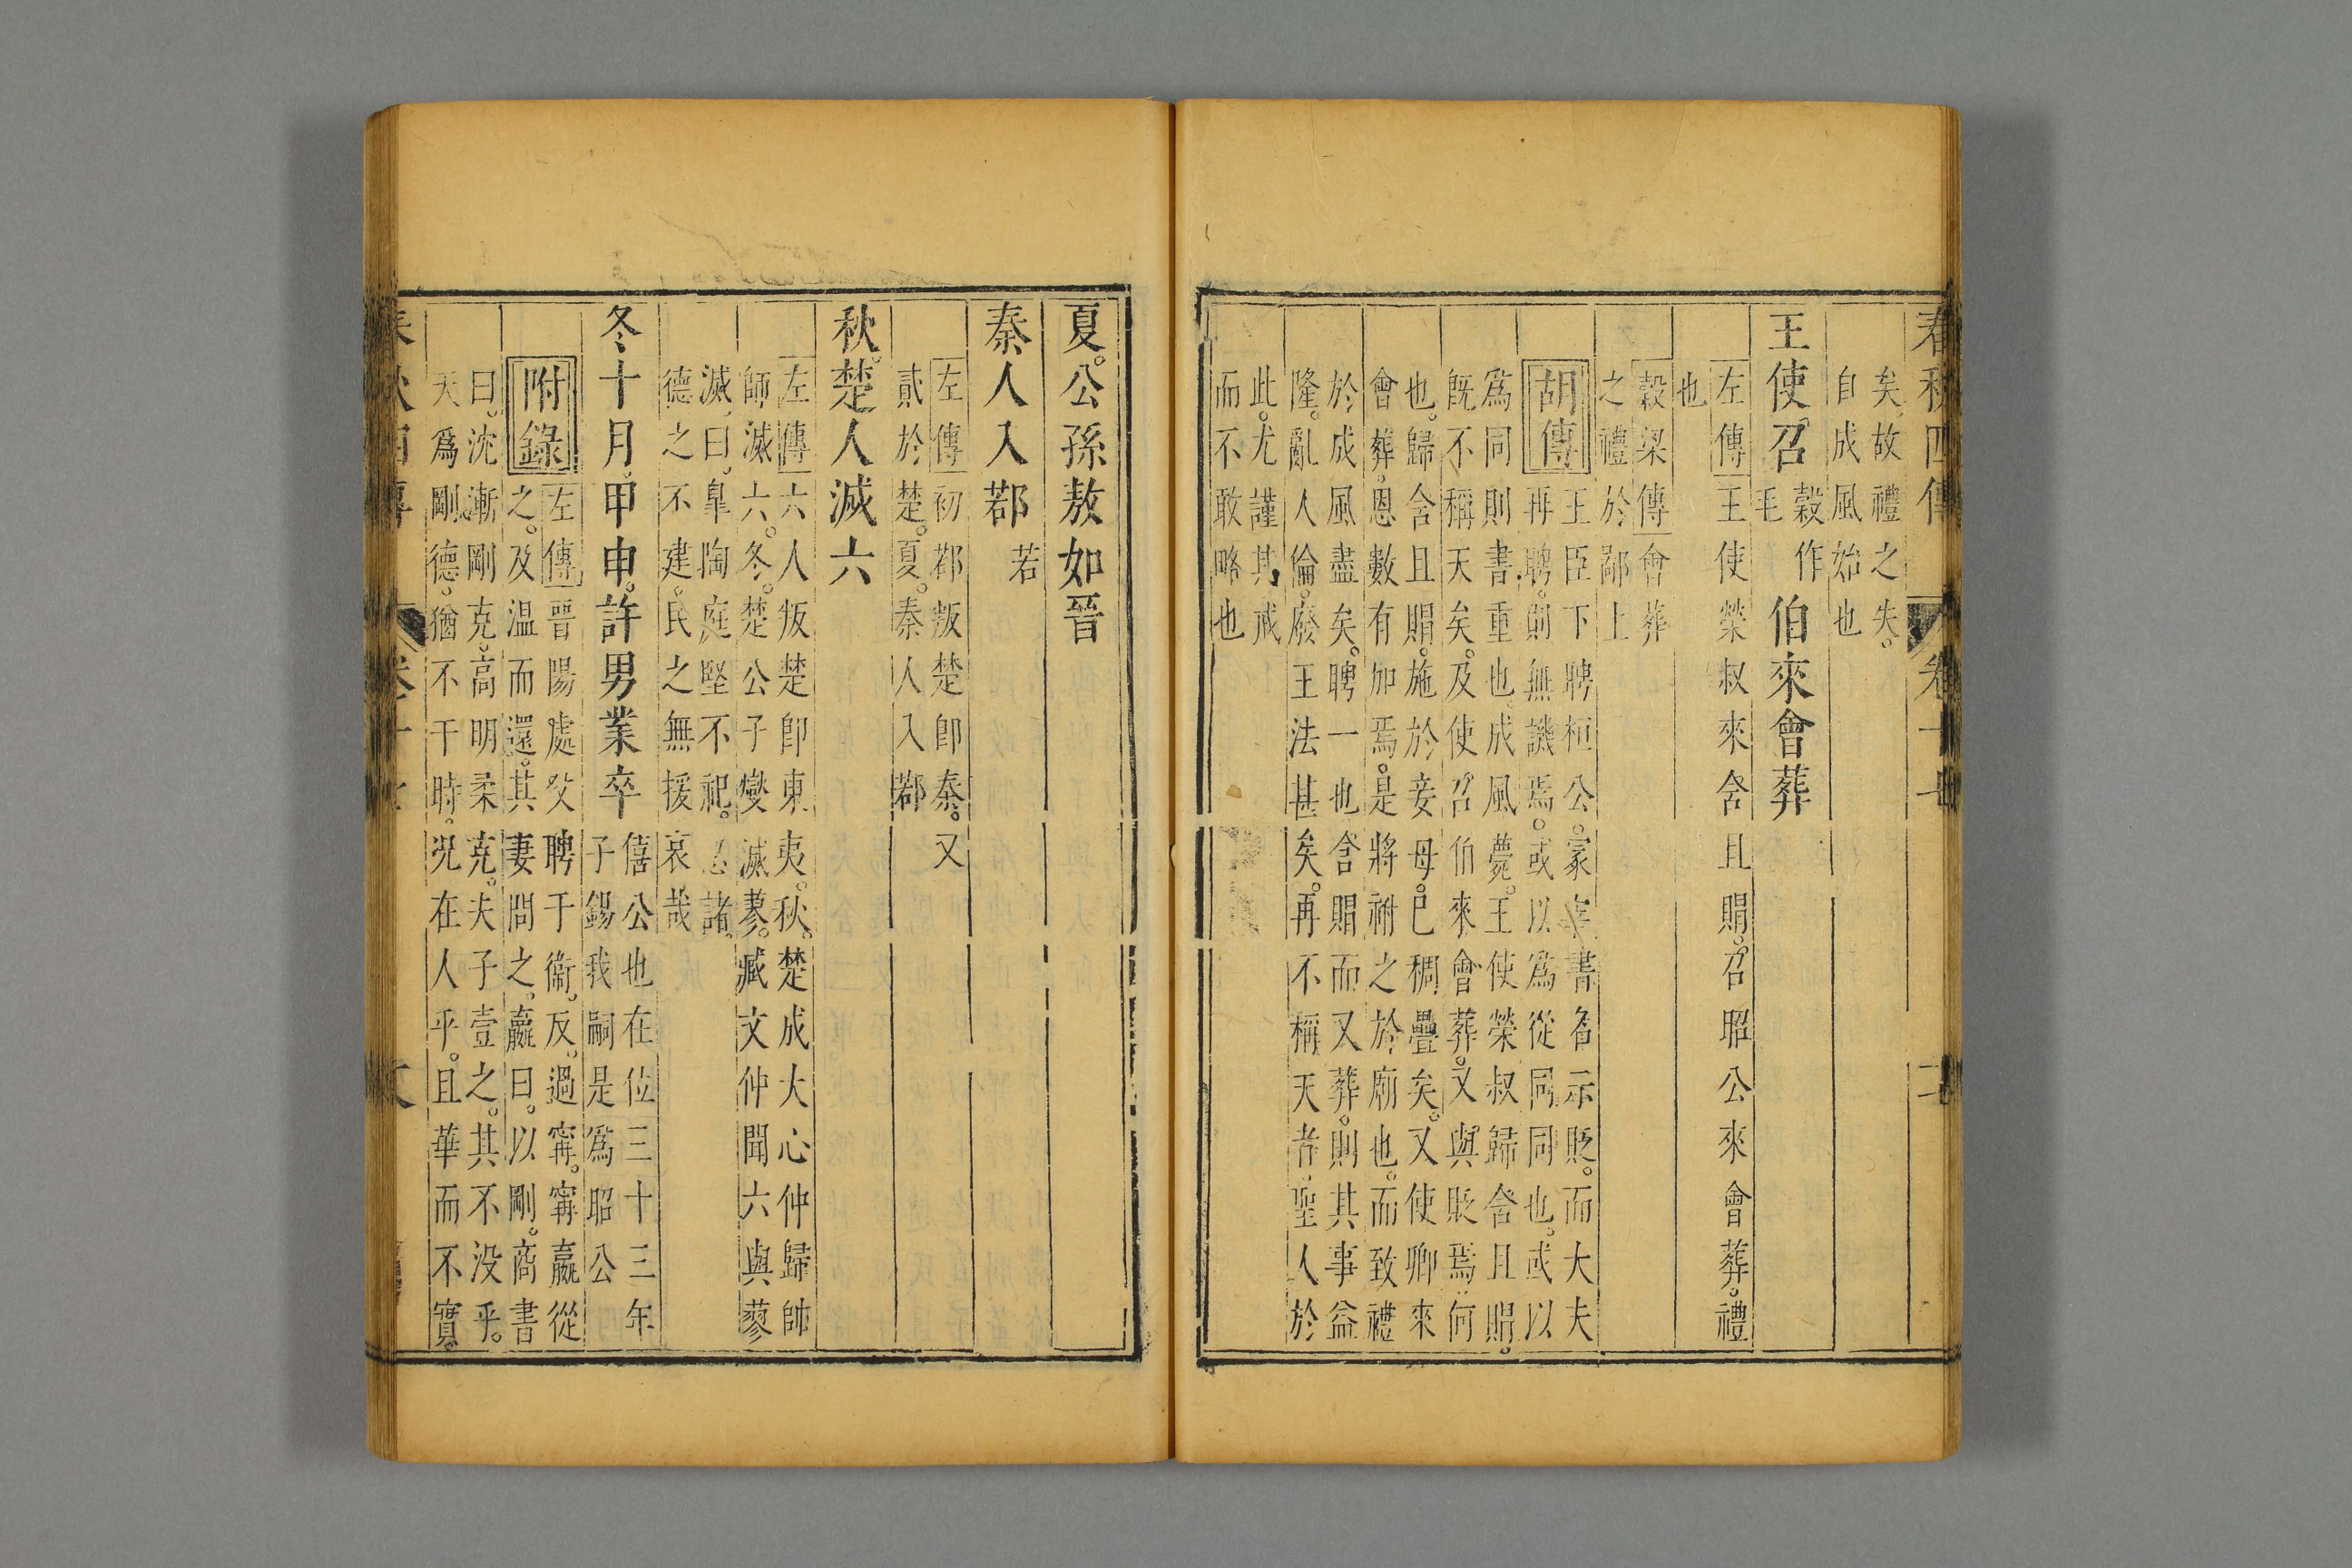 春秋四傳 卷十七 二
矣。故禮之失。
自成風始也
王使召穀作毛伯來會葬
左傳王使榮叔來含且賵。召昭公來會葬。禮
也
穀梁傳會葬
之禮於鄙上
胡傳王臣下聘桓公。家宰書名示貶。而大夫
再聘。則無譏焉。或以爲從同同也。或以
爲同則書重也。成風薨。王使榮叔歸含且賵。
旣不稱天矣。及使召伯來會葬。又與貶焉。何
也。歸含且賵。施於妾母。已稠疊矣。又使卿來
會葬。恩數有加焉。是將祔之於廟也。而致禮
於成風盡矣。聘一也含賵而又葬。則其事益
隆。亂人倫。廢王法甚矣。再不稱天者。聖人於
此。尤謹其戒
而不敢略也
夏。公孫敖如晉
秦人入鄀若
左傳初鄀叛楚卽秦。又
貳於楚。夏。秦人入鄀
秋。楚人滅六
左傳六人叛楚卽東夷。秋。楚成大心仲歸帥
師滅六。冬。楚公子燮滅蓼。臧文仲聞六與蓼
滅。曰。皐陶庭堅不祀。忽諸。
德之不建。民之無援哀哉
冬十月。甲申。許男業卒僖公也在位三十三年
子錫我嗣是爲昭公
附錄左傳晉陽處父聘于衞。反。過甯。甯嬴從
之。及温而還。其妻問之。嬴曰。以剛。商書
曰。沈漸剛克。高明柔克。夫子壹之。其不没乎。
天爲剛德。猶不干時。况在人乎。且華而不實。
春秋四傳 卷十七 文